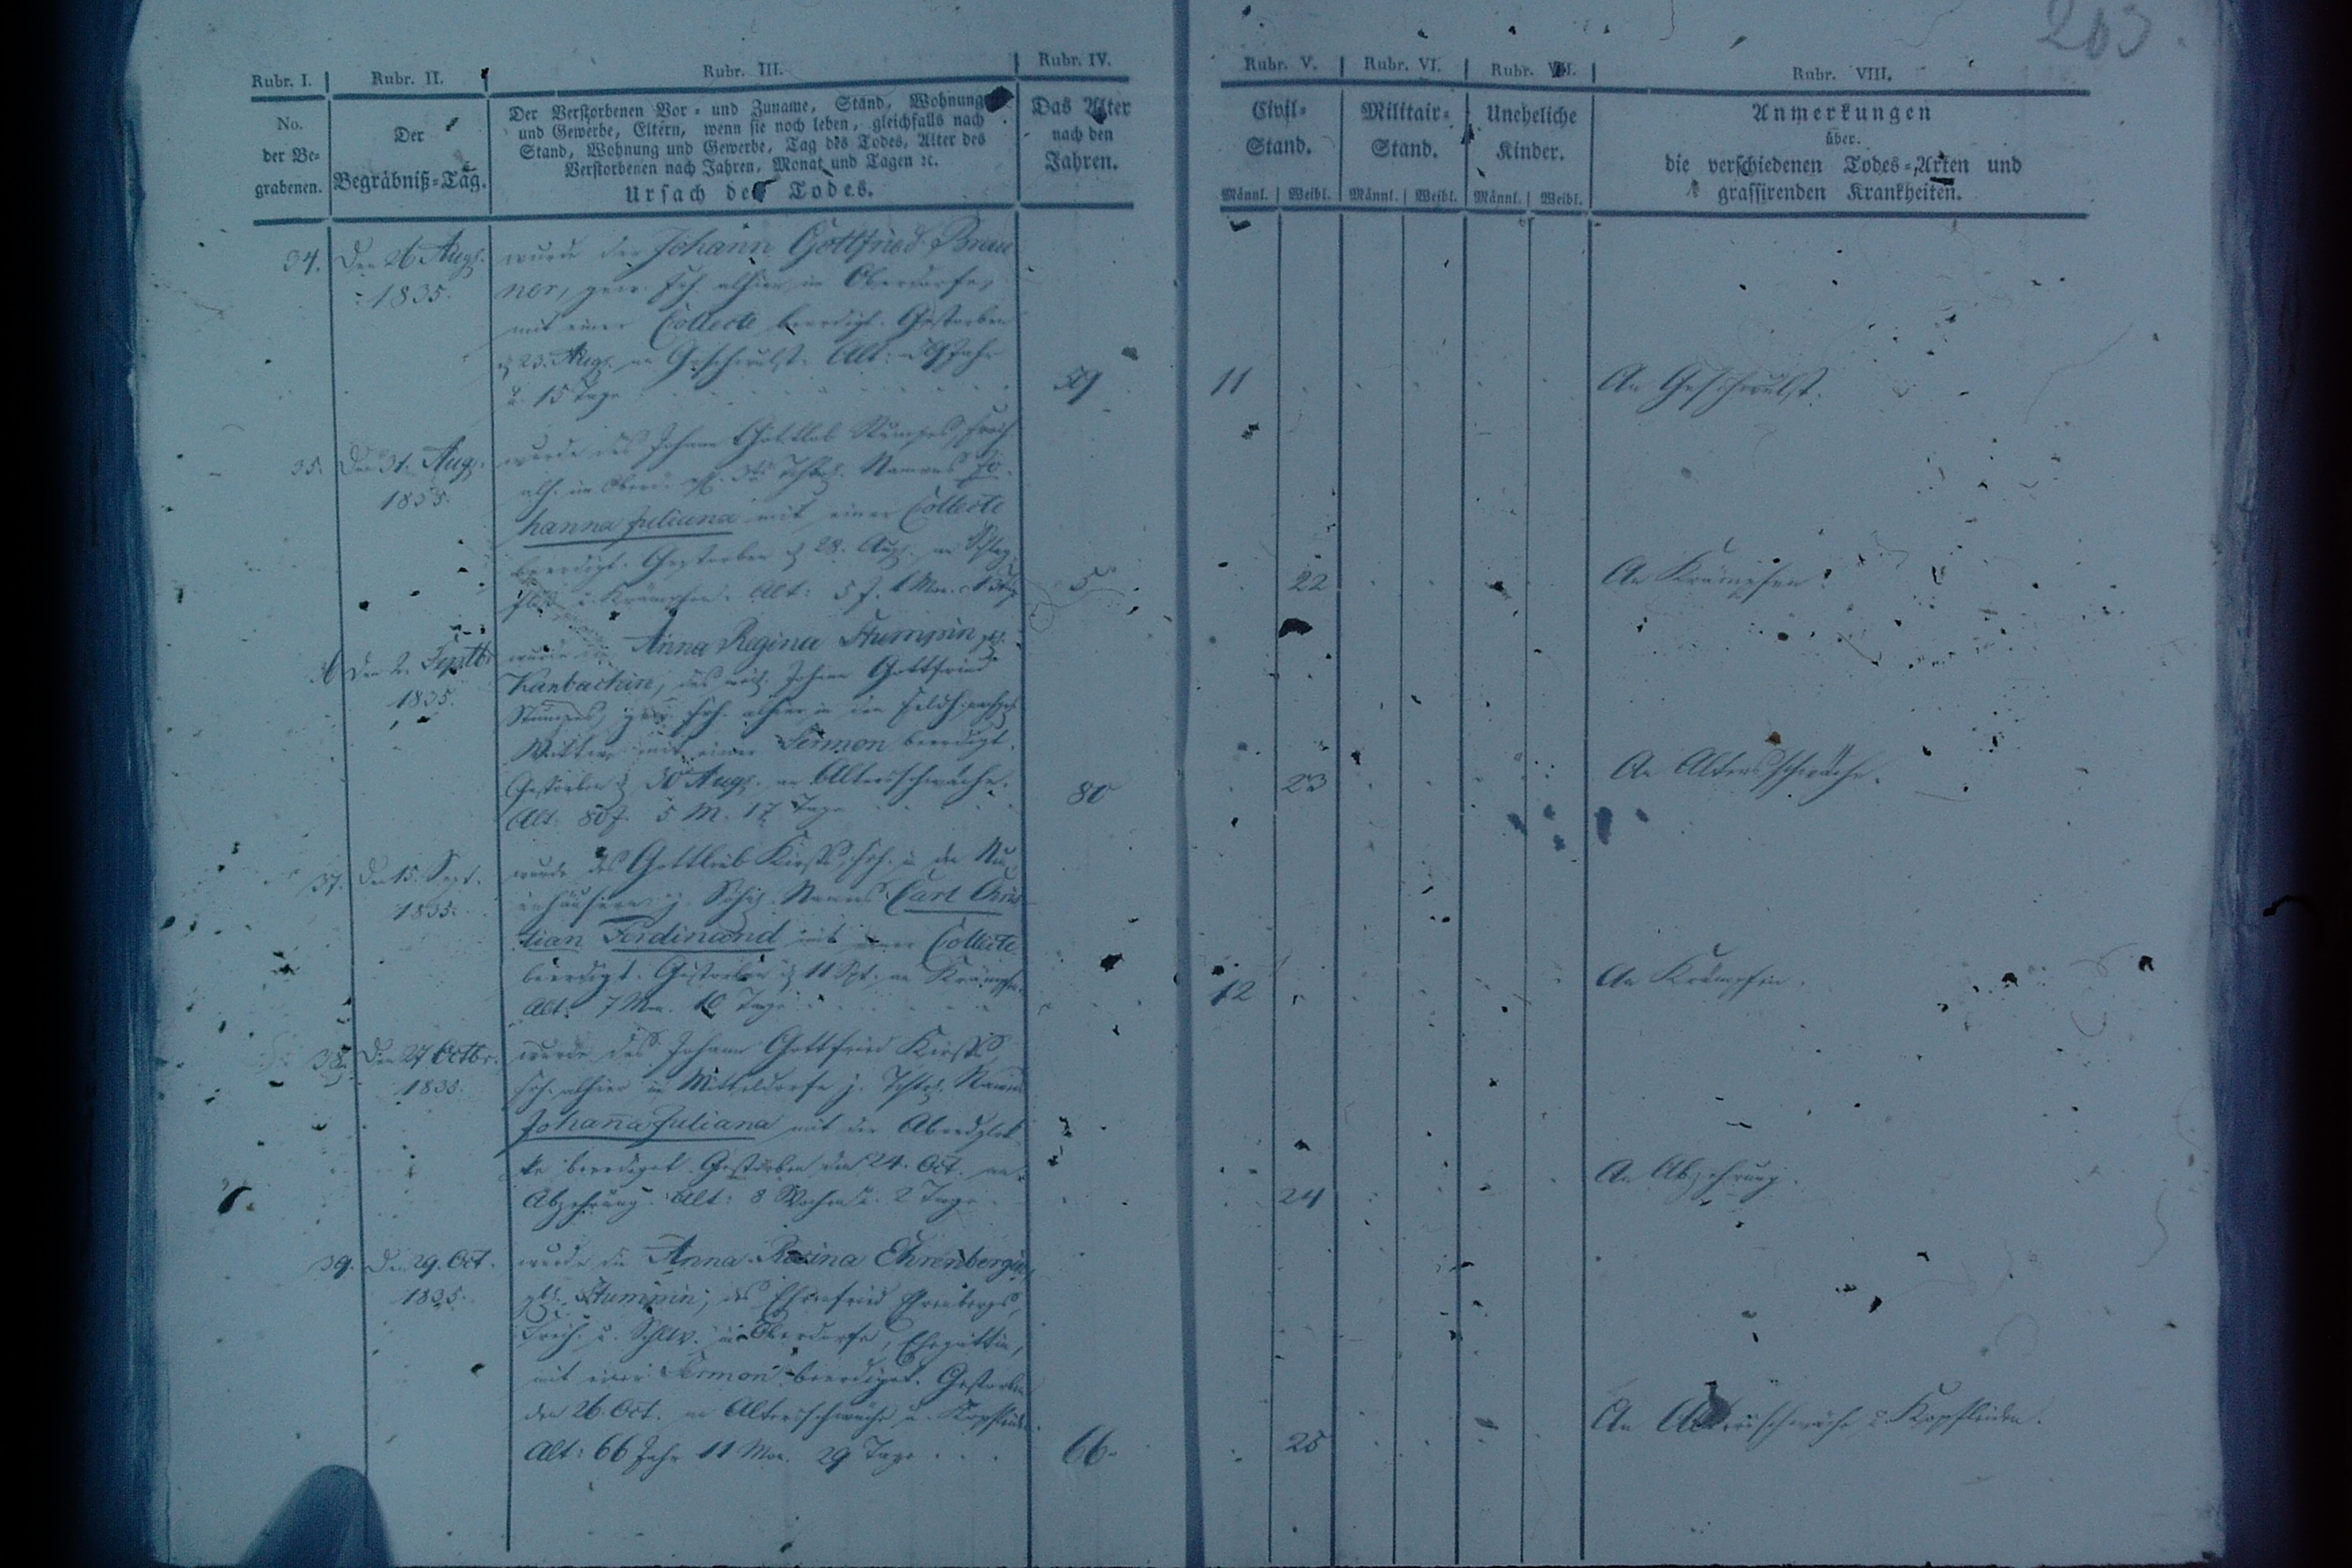 203.
Rubr. I. Rubr. II. Rubr. III. Rubr. IV. Rubr. V. Rubr. VI. Rubr. VII. Rubr. VIII.
No.
der Be-
grabenen.
Der
Begräbniß-Tag.
Der Verstorbenen Vor- und Zuname, Stand, Wohnung
und Gewerbe, Eltern, wenn sie noch leben, gleichfalls nach
Stand, Wohnung und Gewerbe, Tag des Todes, Alter des
Verstorbenen nach Jahren, Monat und Tagen ꝛc.
Ursach des Todes.
Das Alter
nach den
Jahren.
Civil-
Stand.
Militair-
Stand.
Uneheliche
Kinder.
Männl. Weibl. Männl. Weibl. Männl. Weibl.
Anmerkungen
über
die verschiedenen Todes-Arten und
grassirenden Krankheiten.
34. Den 26 Aug. wurde der Johann Gottfried Brau
1835. ner, alhier in Oberdorfe,
mit einer Collecte beerdigt. Gestorben
23. Aug. an Geschwulst. Alt: 59 Jahr
u. 15 Tage 59 11 An Geschwulst.
35. Den 31. Aug. wurde des Johann Gottlob Stumpes,
1835. Namens Jo-
hanna Juliana mit einer Collecte
beerdigt. Gestorben 28. Aug. an Schlag-
fluß u. Krämpfen. Alt: 5 J. 5 22 An Krämpfen.
36 Den 2. Septbr wurde die Anna Regina Stumpin, geb.
1835. Johann Gottfried
Stumpes, alhier in
Wittwe mit einer Sermon beerdigt.
Gestorben 30 Aug. an Altersschwäche.
Alt. 80 J. 5 M. 17 Tage 80 23 An Altersschwäche.
37. Den 15. Sept. wurde des Gottlieb in den Neu-
1835. häusern Namens Carl Chris
tian Ferdinand mit einer Collecte
beerdigt. Gestorben 11 Spt. an Krämpfen.
Alt: 7 Mon. Tage 12 An Krämpfen.
38. Den 27 Octbr. wurde des Johann Gottfried
1835. alhier in Mitteldorfe
Johana Juliana mit der Abendglok-
ke beerdiget. Gestorben den 24. Oct. an
Abzehrung. Alt: 8 Wochen u. 2 Tage 24 An Abzehrung.
39. Den 29. Oct. wurde die Anna Rosina Ehrenbergin,
1835. geb. Stumpin, des Ehrenfried Ehrenbergs,
in Oberdorfe, Ehegattin,
mit einer Sermon beerdiget. Gestorben
den 26. Oct. an Altersschwäche u. Kopfleiden.
Alt: 66 Jahr 11 Mon. 29 Tage 66. 25 An Altersschwäche u. Kopfleiden.